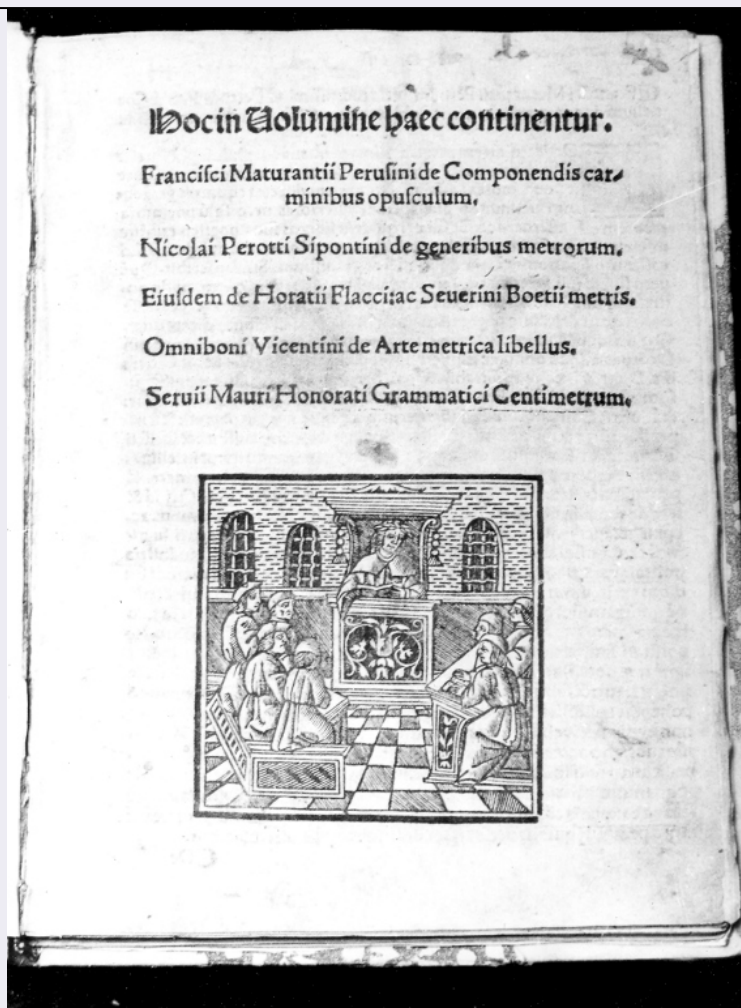 Hoc in Uolumine haec continentur.
Franciſci Maturantii Peruſini de Componendis car⸗
minibus opuſculum.
Nicolai Perotti Sipontini de generibus metrorum.
Eiuſdem de Horatii Flacci: ac Seuerini Boetii metris.
Omniboni Vicentini de Arte metrica libellus.
Seruii Mauri Honorati Grammatici Centimetrum.